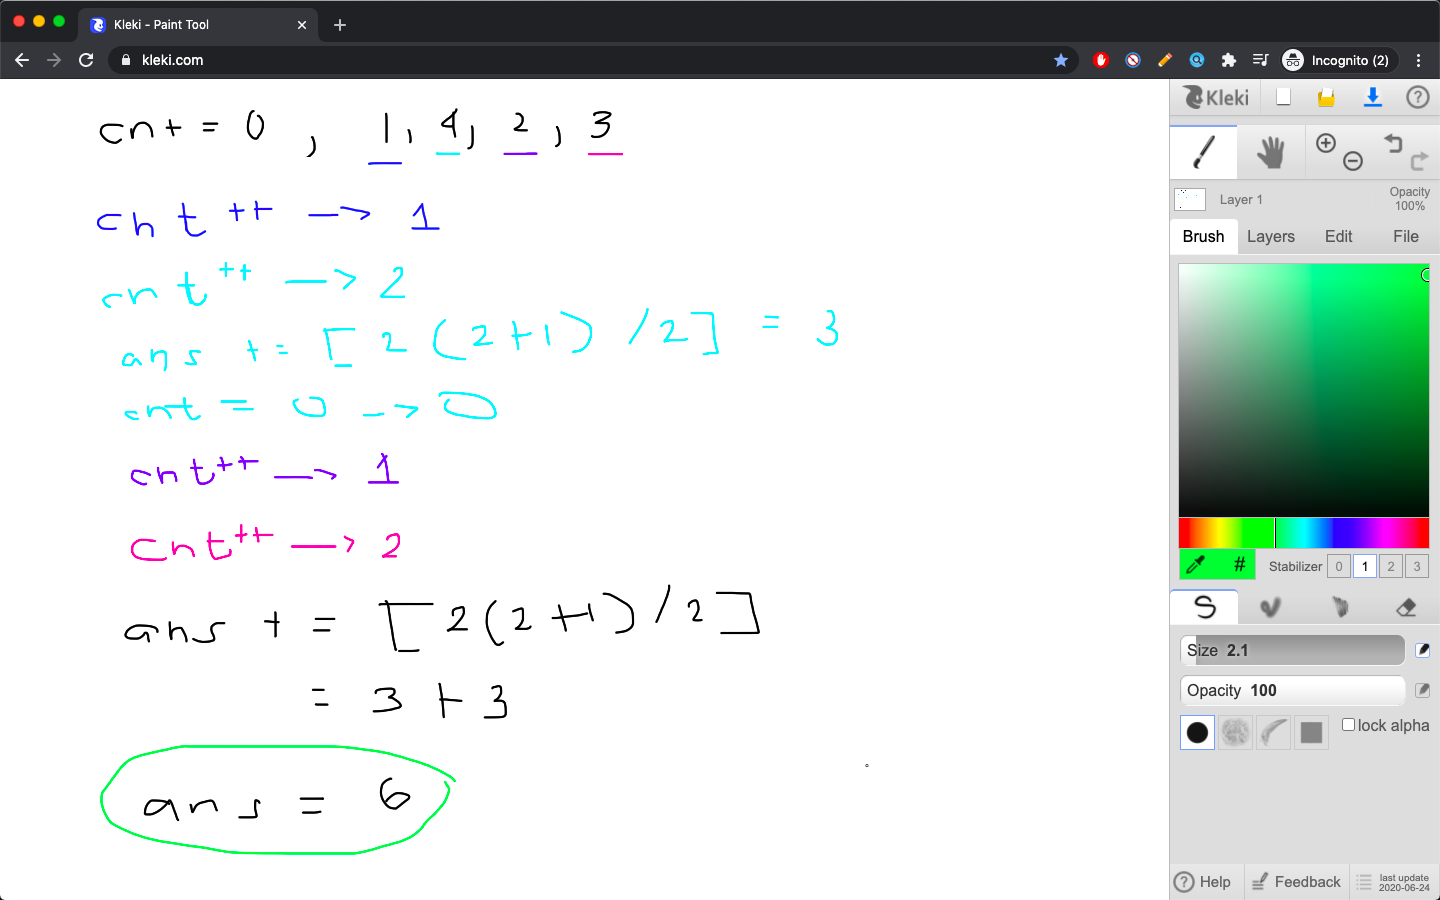 Kleki - Paint Tool
kleki.com
Incognito (2)
cnt = 0 , 1, 4, 2, 3
cnt++ → 1
cnt++ → 2
ans += [2(2+1)/2] = 3
cnt = 0 → 0
cnt++ → 1
cnt++ → 2
ans += [2(2+1)/2]
= 3 + 3
ans = 6
Kleki
Layer 1
Opacity
100%
Brush Layers Edit File
# Stabilizer 0 1 2 3
Size 2.1
Opacity 100
lock alpha
Help Feedback last update
2020-06-24